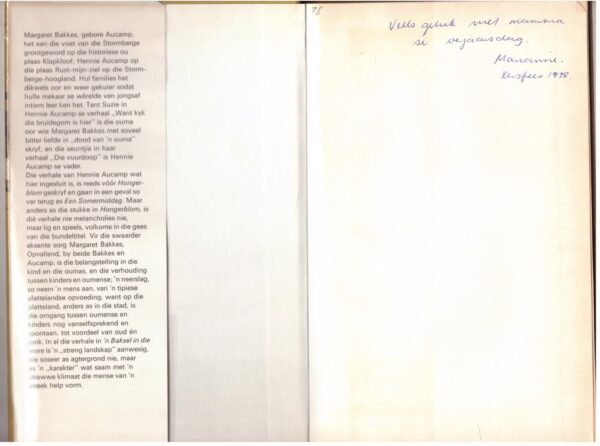 Margaret Bakkes, gebore Aucamp,
het aan die voet van die Stormberge
grootgeword op die historiese ou
plaas Klapkloof; Hennie Aucamp op
die plaas Rust-mijn-ziel op die Storm-
berge-hoogland. Hul families het
dikwels oor en weer gekuier sodat
hulle mekaar se wêrelde van jongsaf
intiem leer ken het. Tant Suzie in
Hennie Aucamp se verhaal „Want kyk
die bruidegom is hier" is die ouma
oor wie Margaret Bakkes met soveel
bitter liefde in „dood van 'n ouma"
skryf; en die seuntjie in haar
verhaal „Die vuurdoop" is Hennie
Aucamp se vader.
Die verhale van Hennie Aucamp wat
hier ingesluit is, is reeds vóór Honger-
blom geskryf en gaan in een geval so
ver terug as Een Somermiddag. Maar
anders as die stukke in Hongerblom, is
dié verhale nie melancholies nie,
maar lig en speels, volkome in die gees
van die bundeltitel. Vir die swaarder
aksente sorg Margaret Bakkes.
Opvallend, by beide Bakkes en
Aucamp, is die belangstelling in die
kind en die oumas, en die verhouding
tussen kinders en oumense; 'n neerslag,
so neem 'n mens aan, van 'n tipiese
plattelandse opvoeding, want op die
platteland, anders as in die stad, is
die omgang tussen oumense en
kinders nog vanselfsprekend en
spontaan, tot voordeel van oud én
jonk. In al die verhale in 'n Baksel in die
môre is 'n „streng landskap" aanwesig,
nie soseer as agtergrond nie, maar
as 'n „karakter" wat saam met 'n
strawwe klimaat die mense van 'n
streek help vorm.
78
Veels geluk met mamma
se verjaarsdag.
Marianne.
Kersfees 1978.